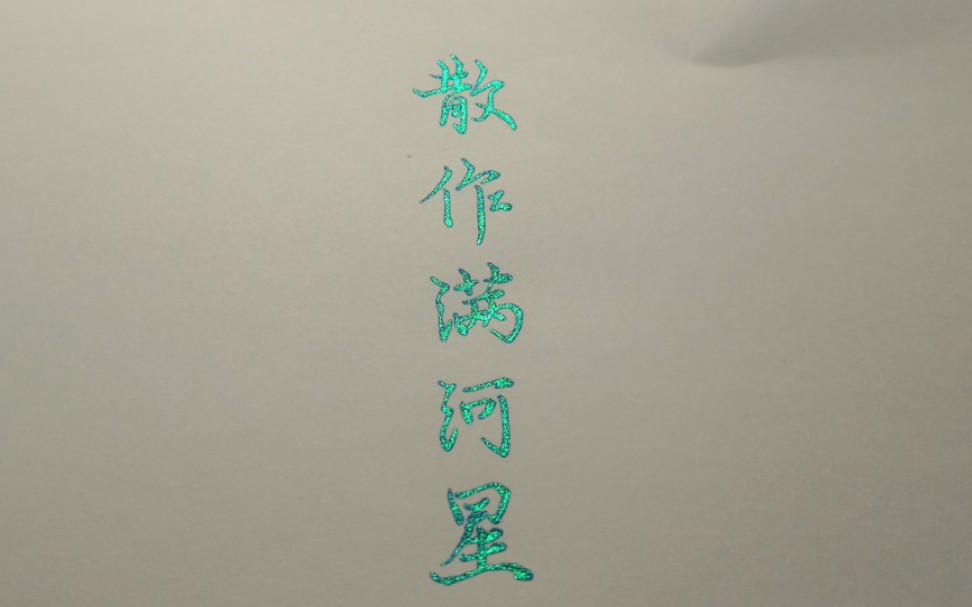 散作满河星